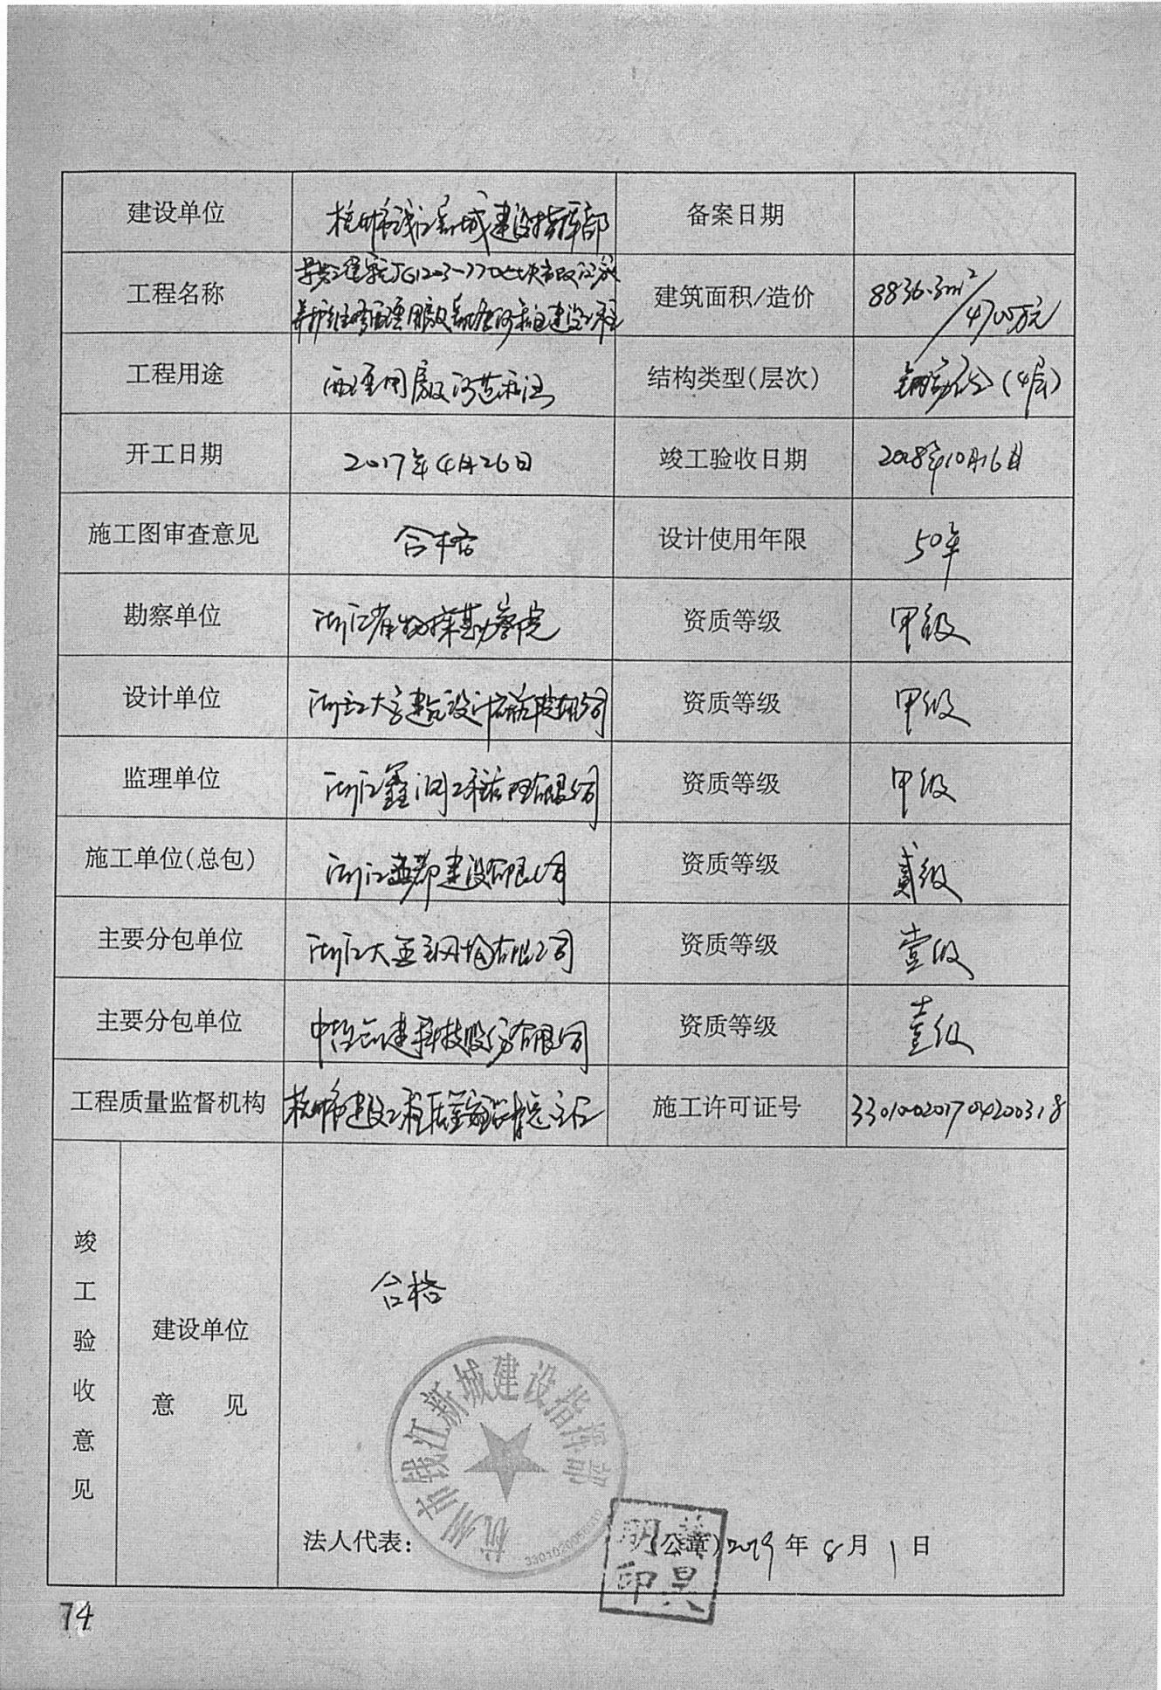 建设单位 杭州市钱江新城建设指挥部 备案日期
工程名称 JG1203-77地块市政设施 建筑面积/造价 8836.3m²/4700万元
养护维修管理用房及 建设工程
工程用途 管理用房及 结构类型(层次) (4层)
开工日期 2017年4月26日 竣工验收日期 2018年10月16日
施工图审查意见 合格 设计使用年限 50年
勘察单位 浙江省物探勘察院 资质等级 甲级
设计单位 浙江大学建筑设计研究院有限公司 资质等级 甲级
监理单位 浙江鑫润工程管理有限公司 资质等级 甲级
施工单位(总包) 浙江 建设有限公司 资质等级 贰级
主要分包单位 浙江大 有限公司 资质等级 壹级
主要分包单位 科技股份有限公司 资质等级 壹级
工程质量监督机构 杭州市建设工程质量安全监督总站 施工许可证号 330100201704200318
竣工验收意见
建设单位
意 见
合格
杭州市钱江新城建设指挥部
法人代表： (公章) 2019 年 8 月 1 日
黄昊明印
74